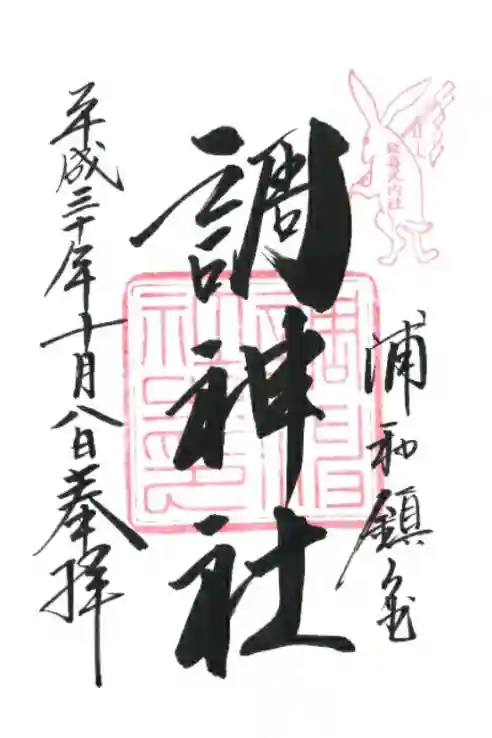 延喜式内社
浦和鎮座
調神社
平成三十年十月八日奉拝